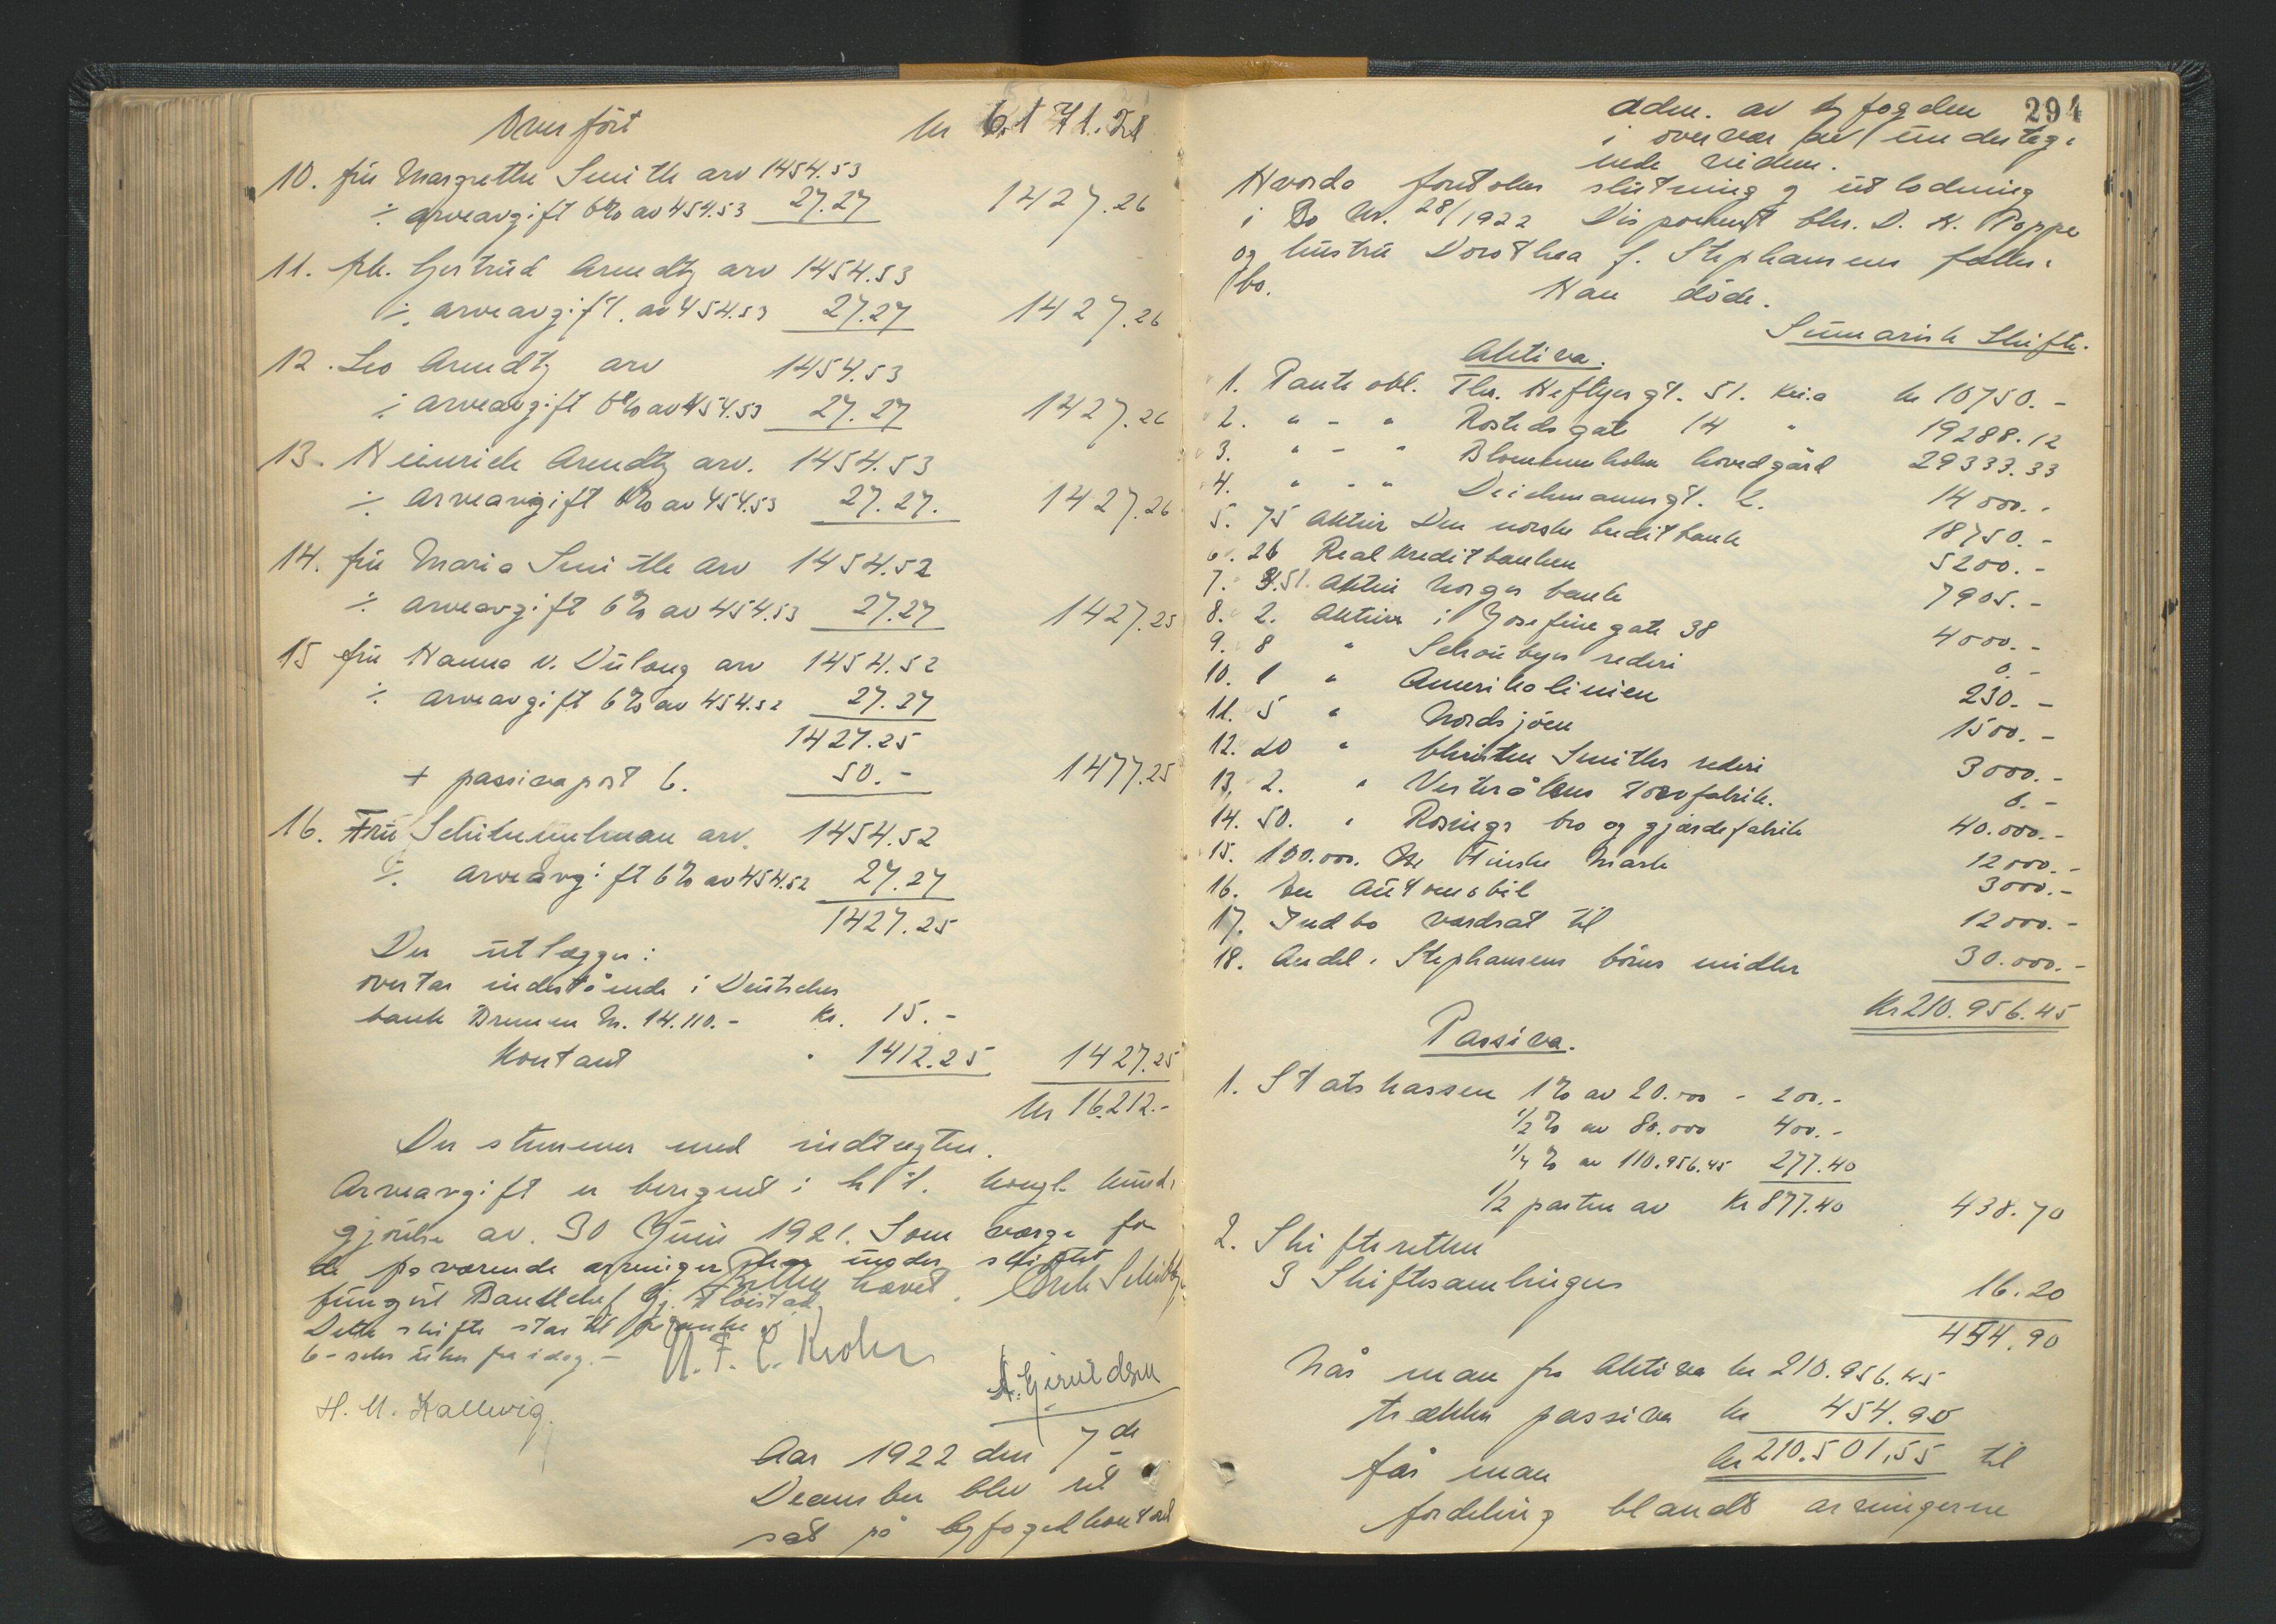 Overført kr 6171.28
10. frü Margrethe Smith arv 1454.53
÷ arveavgift 6% av 454.53 27.27 1427.26
11. frk. Gertrüd Arendtz arv 1454.53
÷ arveavgift. av 454.53 27.27 1427.26
12. Leo Arendtz arv 1454.53
÷ arveavgift 6% av 454.53 27.27 1427.26
13. Heinrich Arendtz arv. 1454.53
÷ arveavgift 6% av 454.53 27.27. 1427.26
14. frü Maria Smith arv 1454.52
÷ arveavgift 6% av 454.53 27.27 1427.25
15 frü Hanna v. Dülong arv 1454.52
÷ arveavgift 6% av 454.52 27.27
1427.25
+ passivapost 6. 50.- 1477.25
16. Frü Schimmelman arv. 1454.52
÷ arveavgift 6% av 454.52 27.27
1427.25
Der ütlægges:
overtar indestående i Deütsches
bank Bremen M. 14.110.- Kr. 15.-
Kontant " 1412.25 1427.25
kr 16.212.-
Der stemmer med indtægten.
Arveavgift er beregnet i h.t. kongl. künd-
gjörelse av. 30 Jüni 1921. Som værge for
de fraværende arvinger har ünder skiftet
füngert Bankchef Gj. Fløistad.
Dette skifte står til påanke i
6-seks üker fra idag.-
H. M. Kallevig.
Aar 1922 den 7de
December blev ret
sat på byfogedkontoret
294
adm. av byfogden
i overvær av ünderteg-
nede vidner.
Hvorda foretokes slütning og ütlodning
i Bo Nr. 28/1922 Disponent Chr. D. K. Poppe
og hüstrü Dorothea f. Stephansens fælles-
bo. Han døde.
Sümarisk Skifte.
Aktiva.
1. Panteobl. Ths. Heftyes gt. 51. Kr.a kr 10750.-
2. " - " Rosteds gate 14 " 19288.12
3. " - " Blommenholm hovedgård 29333.33
4. " - " Deichmansgt. 2. 14000.-
5. 75 Aktier Den norske Creditbank 18750.-
6. 26 Realkreditbanken 5200.-
7. 51. Aktier Norges bank 7905.-
8. 2. Aktier i Josefinegate 38 4000.-
9. 8 " Schoubyes rederi 0.-
10. 1 " Amerikolinien 230.-
11. 5 " Nordsjöen 1500.-
12. 20 " Christen Smiths rederi 3000.-
13. 2. " Vesterålens torvfabrik. 0.-
14. 50. " Rosings bro og gjærdefabrik 40.000.-
15. 100.000. Finske Mark 12000.-
16. En Aütomobil 3000.-
17. Indbo værdsat til 12000.-
18. Andel i Stephansens börns midler 30.000.-
Kr 210.956.45
Passiva.
1. Statskassen 1% av 20.000 - 200.-
1/2% av 80.000 400.-
1/4% av 110.956.45 277.40
1/2 parten av Kr 877.40 438.70
2. Skifteretten
3 Skiftesamlinger 16.20
454.90
Når man fra Aktiva kr 210.956.45
trækker passiva kr 454.90
får man kr 210.501,55 til
fordeling blandt arvingerne